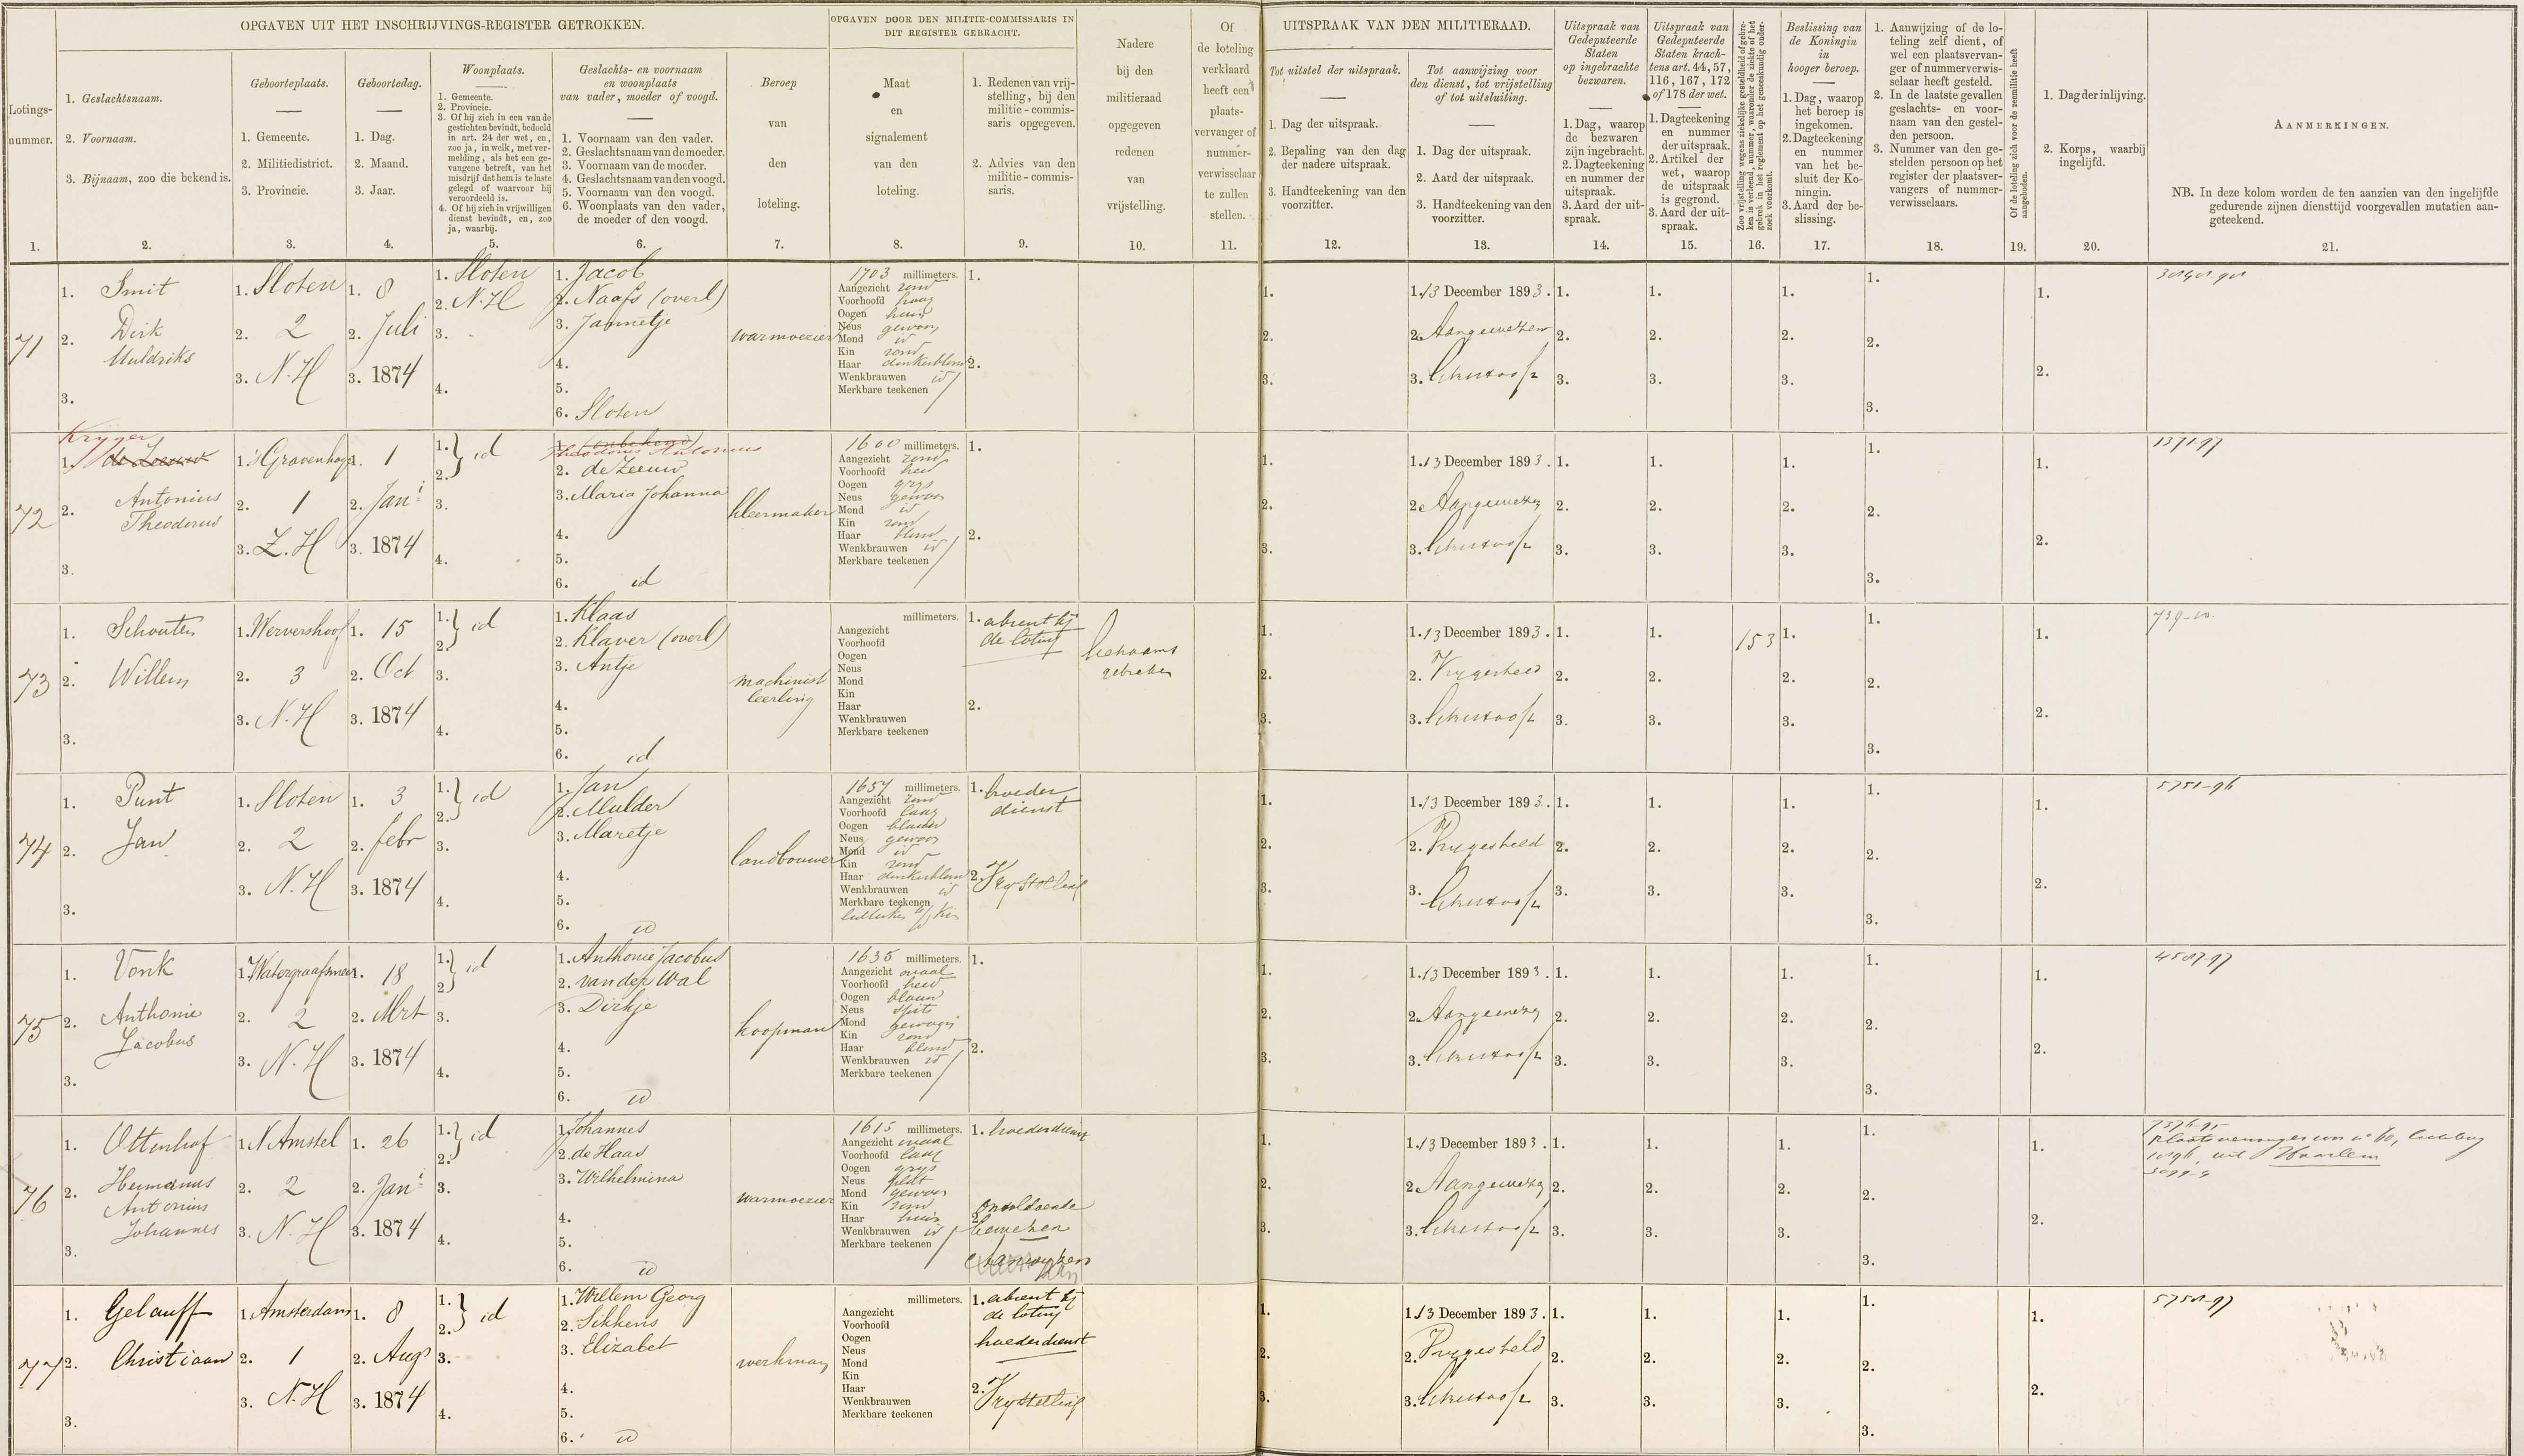 OPGAVEN UIT HET INSCHRIJVINGS-REGISTER GETROKKEN.
OPGAVEN DOOR DEN MILITIE-COMMISSARIS IN
DIT REGISTER GEBRACHT.
UITSPRAAK VAN DEN MILITIERAAD.
Lotings-
nummer.
1.
1. Geslachtsnaam.
2. Voornaam.
3. Bijnaam, zoo die bekend is.
2.
Geboorteplaats.
1. Gemeente.
2. Militiedistrict.
3. Provincie.
3.
Geboortedag.
1. Dag.
2. Maand.
3. Jaar.
4.
Woonplaats.
1. Gemeente.
2. Provincie.
3. Of hij zich in een van de
gestichten bevindt, bedoeld
in art. 24 der wet, en,
zoo ja, in welk, met ver-
melding, als het een ge-
vangene betreft, van het
misdrijf dat hem is te laste
gelegd of waarvoor hij
veroordeeld is.
4. Of hij zich in vrijwilligen
dienst bevindt, en, zoo
ja, waarbij.
5.
Geslachts- en voornaam
en woonplaats
van vader, moeder of voogd.
1. Voornaam van den vader.
2. Geslachtsnaam van de moeder.
3. Voornaam van de moeder.
4. Geslachtsnaam van den voogd.
5. Voornaam van den voogd.
6. Woonplaats van den vader,
de moeder of den voogd.
6.
Beroep
van
den
loteling.
7.
Maat
en
signalement
van den
loteling.
8.
1. Redenen van vrij-
stelling, bij den
militie-commis-
saris opgegeven.
2. Advies van den
militie-commis-
saris.
9.
Nadere
bij den
militieraad
opgegeven
redenen
van
vrijstelling.
10.
Of
de loteling
verklaard
heeft een
plaats-
vervanger of
nummer-
verwisselaar
te zullen
stellen.
11.
Tot uitstel der uitspraak.
1. Dag der uitspraak.
2. Bepaling van den dag
der nadere uitspraak.
3. Handteekening van den
voorzitter.
12.
Tot aanwijzing voor
den dienst, tot vrijstelling
of tot uitsluiting.
1. Dag der uitspraak.
2. Aard der uitspraak.
3. Handteekening van den
voorzitter.
13.
Uitspraak van
Gedeputeerde
Staten
op ingebrachte
bezwaren.
1. Dag, waarop
de bezwaren
zijn ingebracht.
2. Dagteekening
en nummer der
uitspraak.
3. Aard der uit-
spraak.
14.
Uitspraak van
Gedeputeerde
Staten krach-
tens art. 44, 57,
116, 167, 172
of 178 der wet.
1. Dagteekening
en nummer
der uitspraak.
2. Artikel der
wet, waarop
de uitspraak
is gegrond.
3. Aard der uit-
spraak.
15.
Zoo vrijstelling wegens ziekelijke gesteldheid of gebre-
ken is verleend, nummer, waaronder de ziekte of het
gebrek in het reglement op het geneeskundig onder-
zoek voorkomt.
16.
Beslissing van
de Koningin
in
hooger beroep.
1. Dag, waarop
het beroep is
ingekomen.
2. Dagteekening
en nummer
van het be-
sluit der Ko-
ningin.
3. Aard der be-
slissing.
17.
1. Aanwijzing of de lo-
teling zelf dient, of
wel een plaatsvervan-
ger of nummerverwis-
selaar heeft gesteld.
2. In de laatste gevallen
geslachts- en voor-
naam van den gestel-
den persoon.
3. Nummer van den ge-
stelden persoon op het
register der plaatsver-
vangers of nummer-
verwisselaars.
18.
Of de loteling zich voor de zeemilitie heeft
aangeboden.
19.
1. Dag der inlijving.
2. Korps, waarbij
ingelijfd.
20.
AANMERKINGEN.
NB. In deze kolom worden de ten aanzien van den ingelijfde
gedurende zijnen diensttijd voorgevallen mutatiën aan-
geteekend.
21.
71
1. Smit
2. Dirk
Muldriks
3.
1. Sloten
2. 2
3. N.H
1. 8
2. Juli
3. 1874
1. Sloten
2. N.H
3.
4.
1. Jacob
2. Naafs (overl)
3. Jannetje
4.
5.
6. Sloten
warmoezier
1703 millimeters.
Aangezicht rond
Voorhoofd hoog
Oogen bruin
Neus gewoon
Mond id
Kin rond
Haar donkerblond
Wenkbrauwen id
Merkbare teekenen
1.
2.
1. 13 December 1893.
2. Aangewezen
3.
72
Kryger
1. de Zeeuw
2. Antonius
Theodorus
3.
1. 's Gravenhage
2. 1
3. Z.H
1. 1
2. Jani
3. 1874
1. 2. id
3.
4.
1. (onbekend)
Theodorus Antonius
2. de Zeeuw
3. Maria Johanna
4.
5.
6. id
kleermaker
1600 millimeters.
Aangezicht rond
Voorhoofd breed
Oogen grys
Neus gewoon
Mond id
Kin rond
Haar blond
Wenkbrauwen id
Merkbare teekenen
1.
2.
1. 13 December 1893.
2. Aangewezen
3.
1371-97
73
1. Schouten
2. Willem
3.
1. Wervershoof
2. 3
3. N.H
1. 15
2. Oct
3. 1874
1. 2. id
3.
4.
1. Klaas
2. Klaver (overl)
3. Antje
4.
5.
6. id
machinist
leerling
millimeters.
Aangezicht
Voorhoofd
Oogen
Neus
Mond
Kin
Haar
Wenkbrauwen
Merkbare teekenen
1. absent bij
de loting
2.
lichaams
gebreken
1. 13 December 1893.
2. Vrygesteld
3.
153
74
1. Punt
2. Jan
3.
1. Sloten
2. 2
3. N.H
1. 3
2. febr
3. 1874
1. 2. id
3.
4.
1. Jan
2. Mulder
3. Maretje
4.
5.
6. id
landbouwer
1657 millimeters.
Aangezicht rond
Voorhoofd laag
Oogen blauw
Neus gewoon
Mond id
Kin rond
Haar donkerblond
Wenkbrauwen id
Merkbare teekenen
1. broeder
dienst
2. Vrystelling
1. 13 December 1893.
2. Vrygesteld
3.
5751-96
75
1. Vonk
2. Anthonie
Jacobus
3.
1. Watergraafsmeer
2. 2
3. N.H
1. 18
2. Mrt
3. 1874
1. 2. id
3.
4.
1. Anthonie Jacobus
2. van der Wal
3. Dirkje
4.
5.
6. id
koopman
1635 millimeters.
Aangezicht ovaal
Voorhoofd breed
Oogen blauw
Neus spits
Mond gewoon
Kin rond
Haar blond
Wenkbrauwen id
Merkbare teekenen
1.
2.
1. 13 December 1893.
2. Aangewezen
3.
76
1. Ottenhof
2. Hermanus
Antonius
Johannes
3.
1. N Amstel
2. 2
3. N.H
1. 26
2. Jani
3. 1874
1. 2. id
3.
4.
1. Johannes
2. de Haas
3. Wilhelmina
4.
5.
6. id
warmoezier
1615 millimeters.
Aangezicht ovaal
Voorhoofd laag
Oogen grys
Neus
Mond gewoon
Kin rond
Haar bruin
Wenkbrauwen id
Merkbare teekenen
1. broederdienst
2. onvoldoende
bewezen
1. 13 December 1893.
2. Aangewezen
3.
uit Haarlem
77
1. Gelauff
2. Christiaan
3.
1. Amsterdam
2. 1
3. N.H
1. 8
2. Aug
3. 1874
1. 2. id
3.
4.
1. Willem Georg
2. Sikkens
3. Elizabet
4.
5.
6. id
werkman
millimeters.
Aangezicht
Voorhoofd
Oogen
Neus
Mond
Kin
Haar
Wenkbrauwen
Merkbare teekenen
1. absent bij
de loting
broederdienst
2. Vrystelling
1. 13 December 1893.
2. Vrygesteld
3.